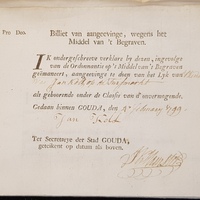 Pro Deo.
Billet van aangeevinge, wegens het
Middel van 't Begraven.
IK ondergeschreve verklare by dezen, ingevolge
van de Ordonnantie op 't Middel van 't Begraven
geëmaneert, aangeevinge te doen van het Lyk van
als gehoorende onder de Classe van d' onvermogende.
Gedaan binnen GOUDA, den 4 February 1799
Jan
Ter Secretarye der Stad GOUDA,
geteikent op datum als boven.